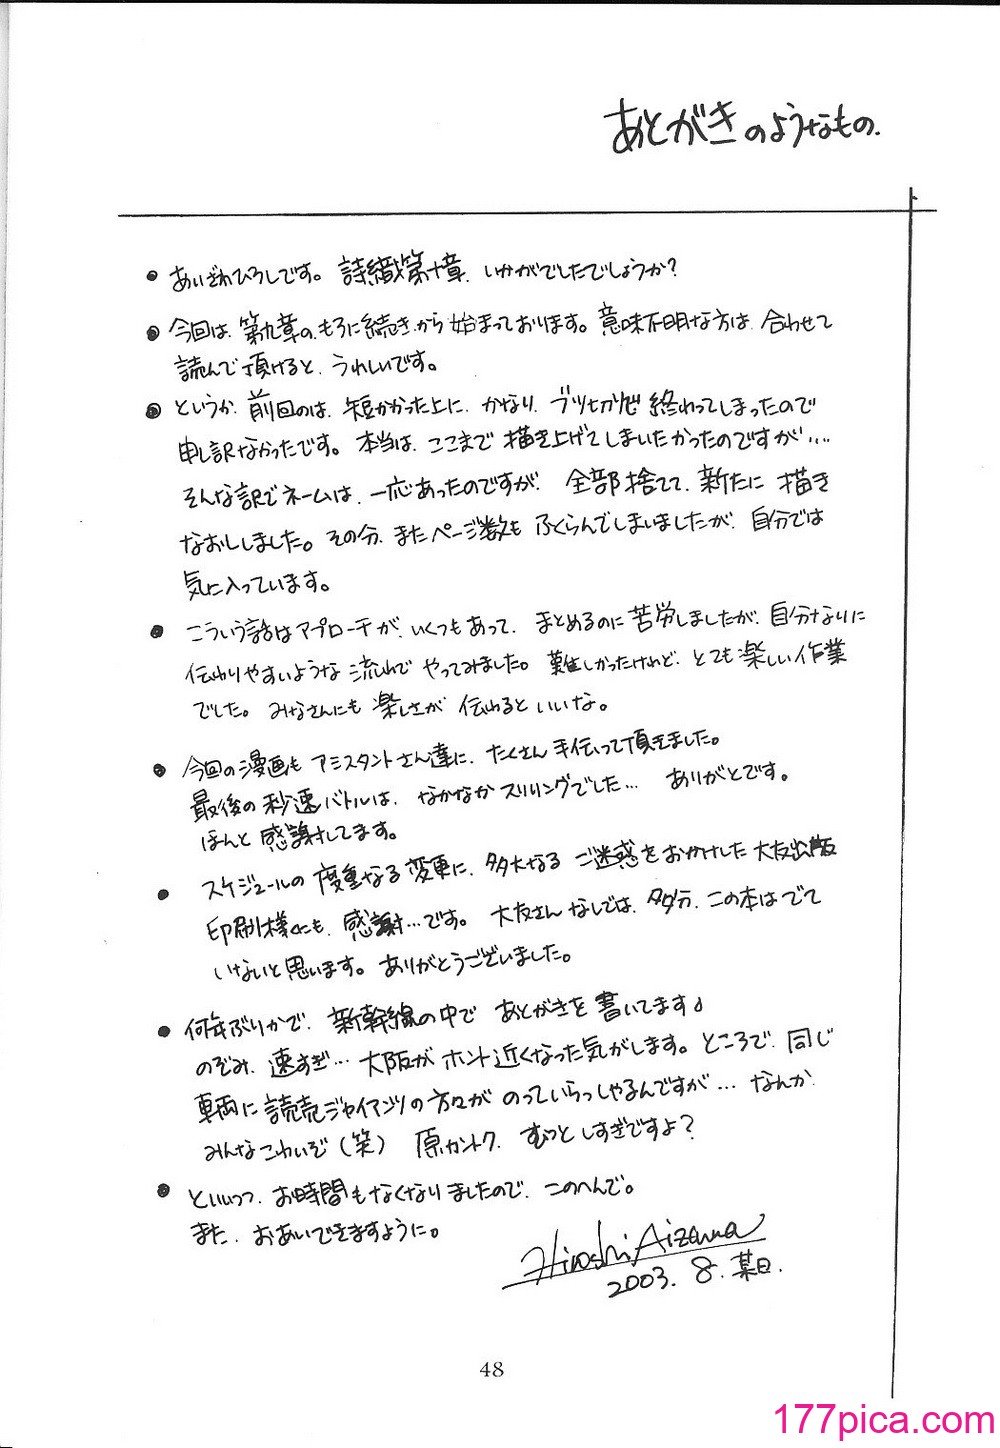 あとがきのようなもの.
• あいざわひろしです。詩織第十章、いかがでしたでしょうか?
• 今回は、第九章の、もろに続きから始まっております。意味不明な方は、合わせて
読んで頂けると、うれしいです。
• というか、前回のは、短かかった上に、かなり、ブツ切りで終わってしまったので
申し訳なかったです。本当は、ここまで描き上げてしまいたかったのですが…
そんな訳でネームは、一応あったのですが、全部捨てて、新たに描き
なおししました。その分、またページ数もふくらんでしまいましたが、自分では
気に入っています。
• こういう話はアプローチが、いくつもあって、まとめるのに苦労しましたが、自分なりに
伝わりやすいような流れでやってみました。難しかったけれど、とても楽しい作業
でした。みなさんにも楽しさが伝わるといいな。
• 今回の漫画もアシスタントさん達に、たくさん手伝って頂きました。
最後の秒速バトルは、なかなかスリリングでした… ありがとです。
ほんと感謝してます。
• スケジュールの度重なる変更に、多大なるご迷惑をおかけした大友出版
印刷様にも、感謝…です。大友さんなしでは、多分、この本はでて
いないと思います。ありがとうございました。
• 何年ぶりかで、新幹線の中であとがきを書いてます♩
のぞみ、速すぎ… 大阪がホント近くなった気がします。ところで、同じ
車両に読売ジャイアンツの方々がのっていらっしゃるんですが… なんか、
みんなこわいぞ(笑) 原カントク、むっとしすぎですよ?
• といいつつ、お時間もなくなりましたので、このへんで。
また、おあいできますように。
Hiroshi Aizawa
2003. 8. 某日.
48
177pica.com